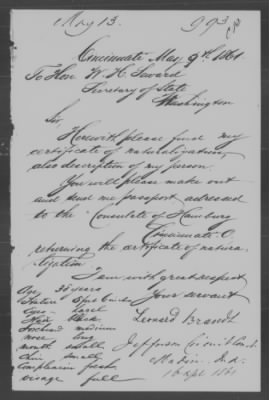 May 13.
Cincinnati May 9th 1861.
To Hon. W. H. Seward
Secretary of State
Washington
Sir
Herewith please find my
certificate of naturalization,
also description of my person.
You will please make out
and send me passport adressed
to the Consulate of Hamburg
Cincinnati O.
returning the certificate of natura
lization.
I am with great respect
Your servant
Leonard Brandt
Age 36 years
Stature 5 feet
Eyes hazel
Hair black
Forehead medium
nose
mouth small
Chin small
Complexion fresh
visage full
Jefferson Circuit Court
Madison Ind.